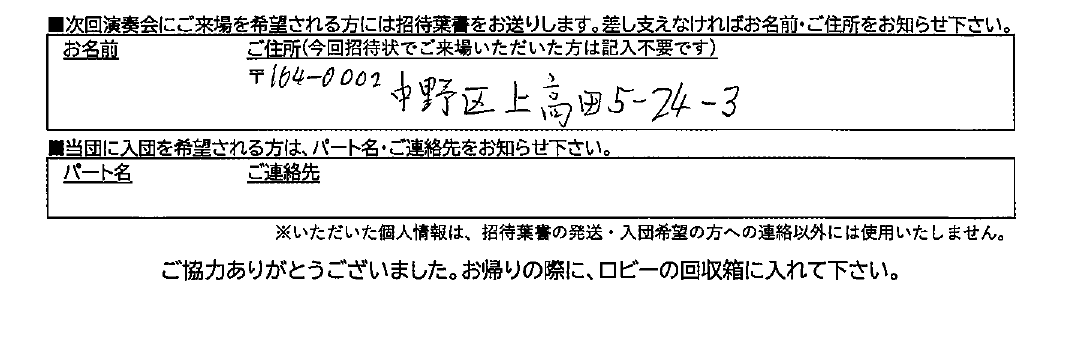 ■次回演奏会にご来場を希望される方には招待葉書をお送りします。差し支えなければお名前・ご住所をお知らせ下さい。
お名前 ご住所(今回招待状でご来場いただいた方は記入不要です)
〒164-0002 中野区上高田5-24-3
■当団に入団を希望される方は、パート名・ご連絡先をお知らせ下さい。
パート名 ご連絡先
※いただいた個人情報は、招待葉書の発送・入団希望の方への連絡以外には使用いたしません。
ご協力ありがとうございました。お帰りの際に、ロビーの回収箱に入れて下さい。